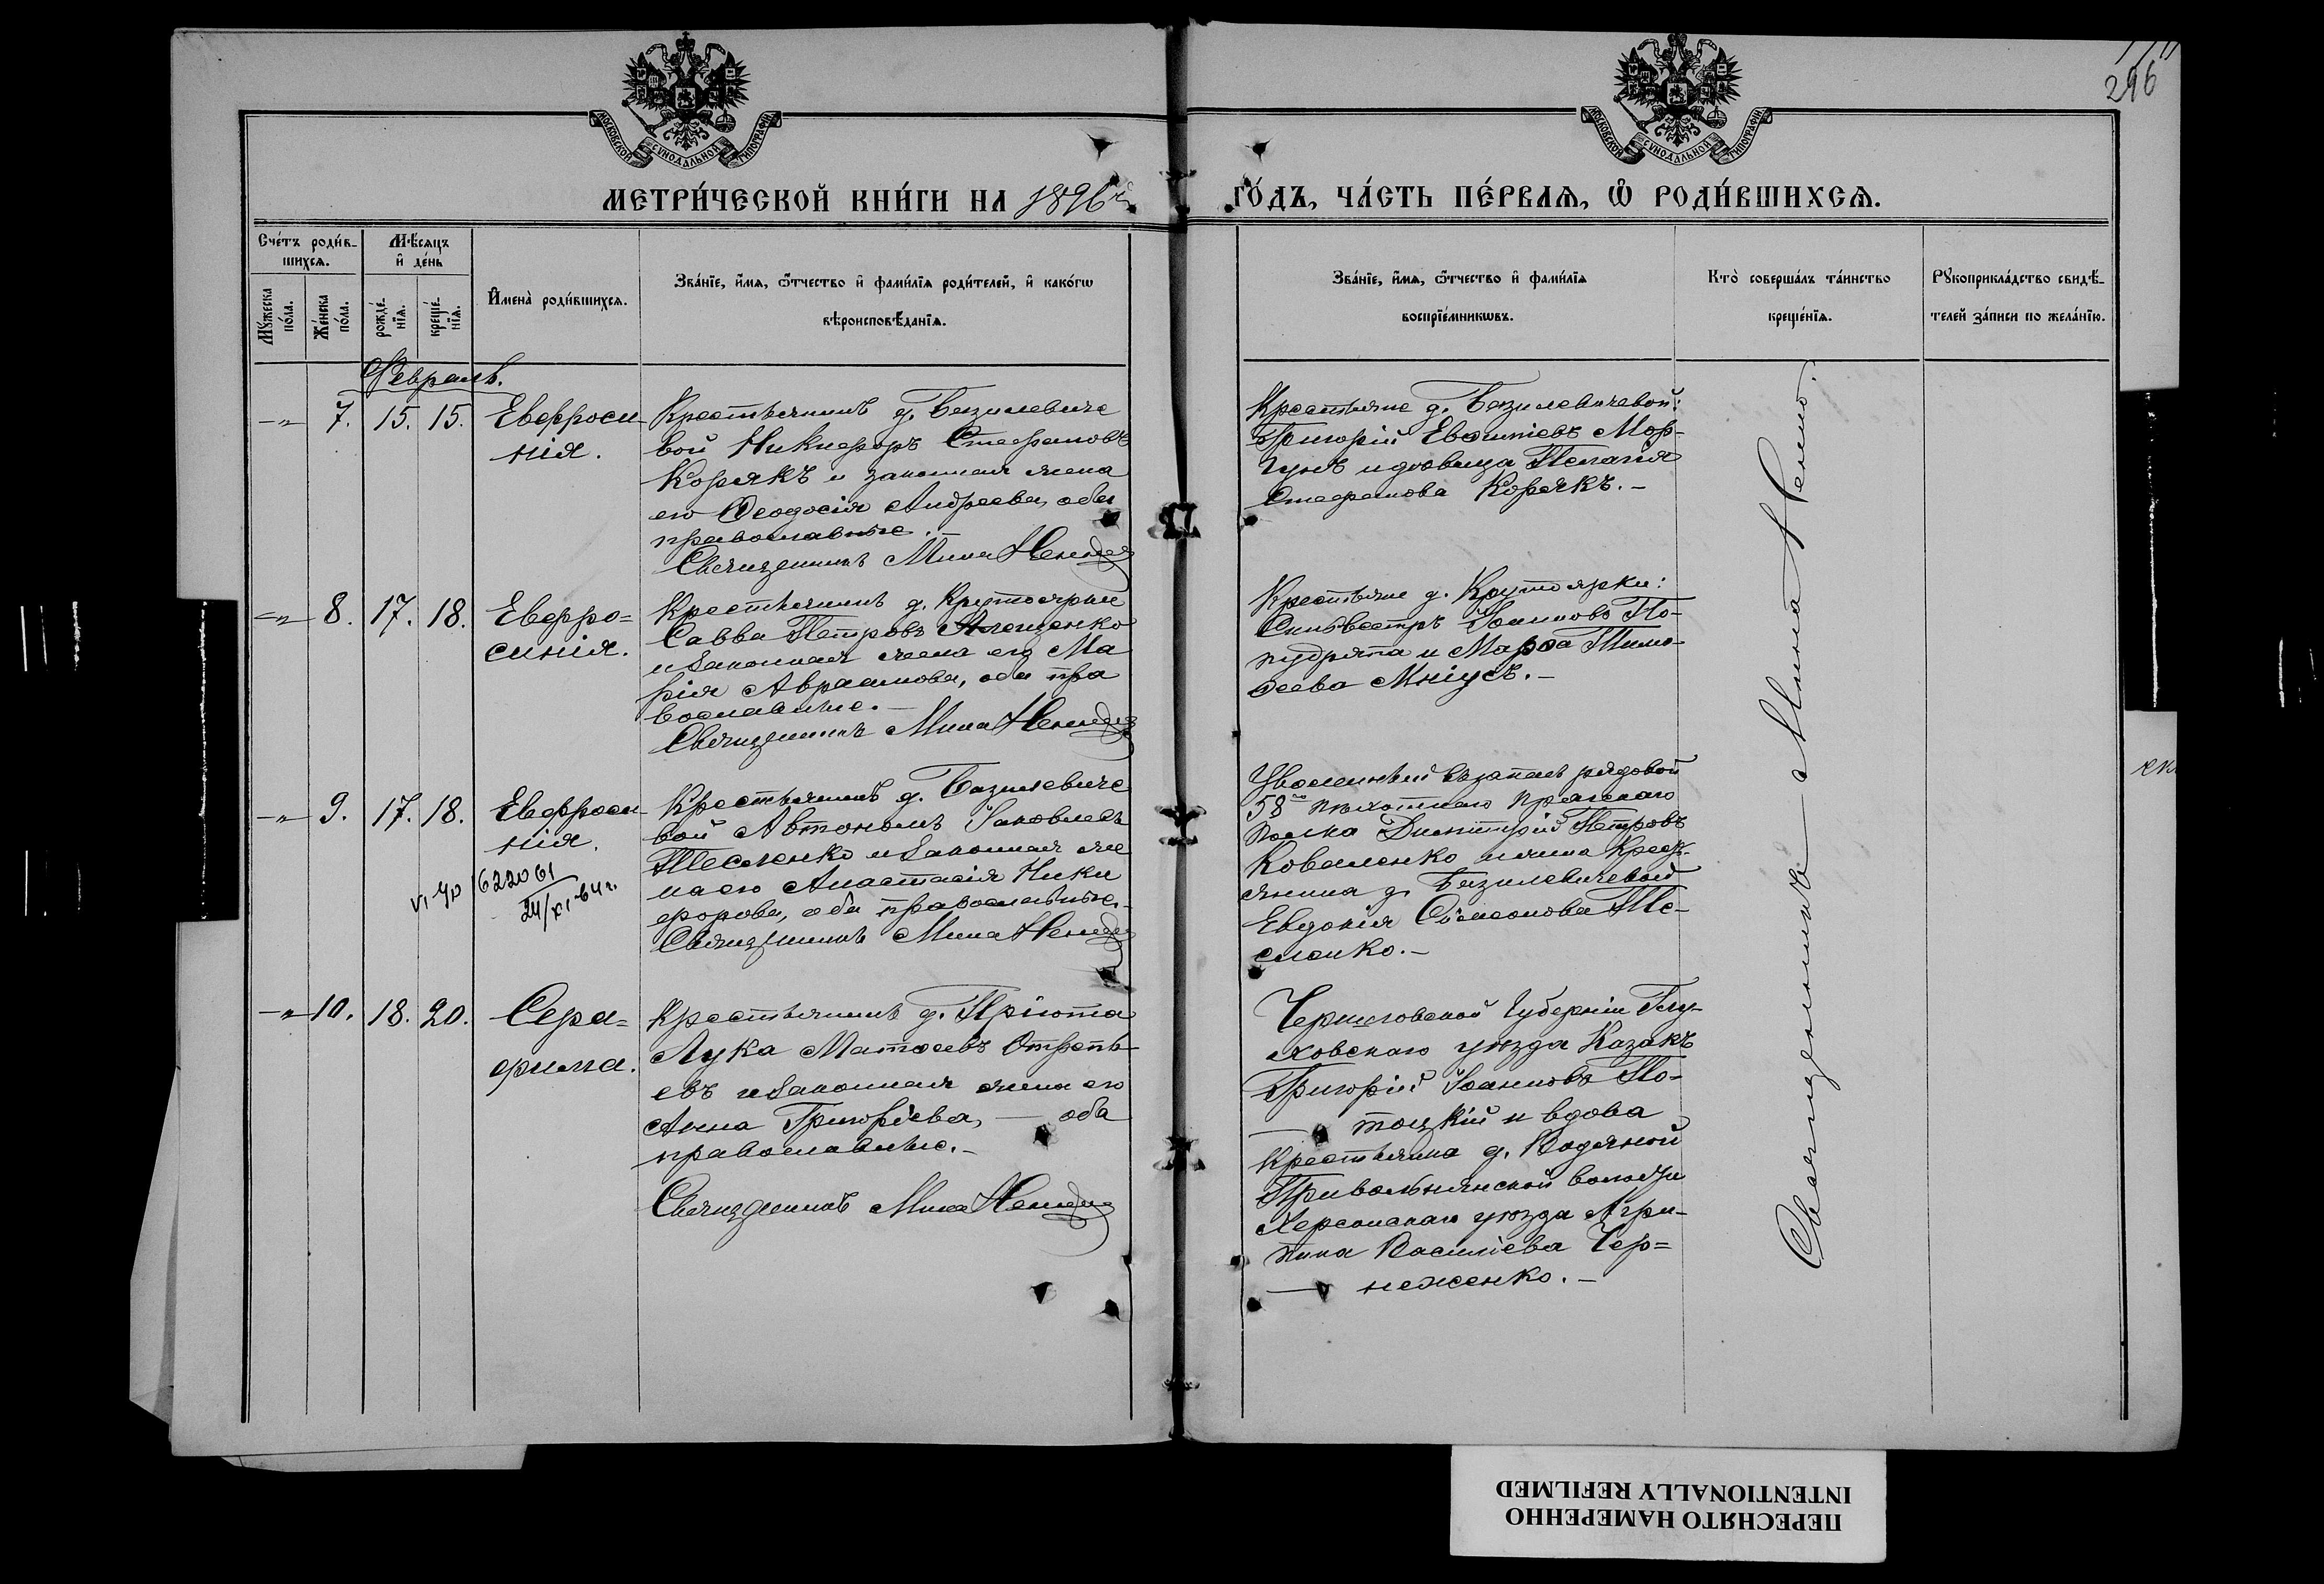 296
МОСКОВСКОЙ СѴНОДАЛЬНОЙ ТИПОГРАФІИ
МОСКОВСКОЙ СѴНОДАЛЬНОЙ ТИПОГРАФІИ
МЕТРИ́ЧЕСКОЙ КНИ́ГИ НА 1896й
ГО́ДЪ, ЧА́СТЬ ПЕ́РВАѦ, Ѡ҆ РОДИ́ВШИХСѦ.
Сче́тъ роди́в-
шихсѧ.
Мѣ́сѧцъ
и҆ де́нь
Мꙋ́жеска
по́ла.
Же́нска
по́ла.
рожде́-
нїѧ.
креще́-
нїѧ.
И҆мена̀ роди́вшихсѧ.
Зва́нїе, и҆́мѧ, ѻ҆́тчество и҆ фами́лїѧ роди́телей, и҆ како́гѡ
вѣроисповѣ́данїѧ.
Зва́нїе, и҆́мѧ, ѻ҆́тчество и҆ фами́лїѧ
воспрїе́мникѡвъ.
Кто̀ соверша́лъ та́инство
креще́нїѧ.
Рꙋкоприкла́дство свидѣ́-
телей за́писи по жела́нїю.
Февраль.
-„- 7. 15. 15.
Евфроси-
нія.
Крестьянинъ д. Базилевиче
вой Никифоръ Стефановъ
Корякъ и законная жена
его Ѳеодосія Андреева, оба
православные.
Священникъ Мина
Крестьяне д. Базилевичевой:
Григорій Евѳиміевъ Мор-
гунъ и дѣвица Пелагія
Стефанова Корякъ.-
-„- 8. 17. 18.
Евфро=
синія.
Крестьянинъ д. Крутоярки
Савва Петровъ Алещенко
и законная жена его Ма
рія Авраамова, оба пра
вославные.-
Священникъ Мина
Крестьяне д. Крутоярки:
Сильвестръ Іоанновъ По-
пудрята и Марѳа Тимо-
ѳеева Мніусъ.-
-„- 9. 17. 18.
Евфроси-
нія.
VI-ЯР 622061
24/XI-64г.
Крестьянинъ д. Базилевиче
вой Автономъ Іаковлевъ
Тесленко и законная же
на его Анастасія Ники
форова, оба православные.-
Священникъ Мина
Уволенный въ запасъ рядовой
58го пѣхотнаго Пражскаго
полка Димитрій Петровъ
Коваленко и жена крест-
янина д. Базилевичевой
Евдокія Сѵмеонова Те-
сленко.-
-„- 10. 18. 20.
Сера=
фима.
Крестьянинъ д. Пріюта
Лука Матѳеевъ Отрепь-
евъ и законная жена его
Анна Григоріева, — оба
православные.-
Священникъ Мина
Черниговской Губерніи Глу-
ховскаго уѣзда Казакъ
Григорій Іоанновъ По-
тоцкій и вдова
крестьянка д. Водяной
Привольнянской волости
Херсонскаго уѣзда Агри-
пина Василіева Чер=
неженко.-
Священникъ Мина
ПЕРЕСНЯТО НАМЕРЕННО
INTENTIONALLY REFILMED